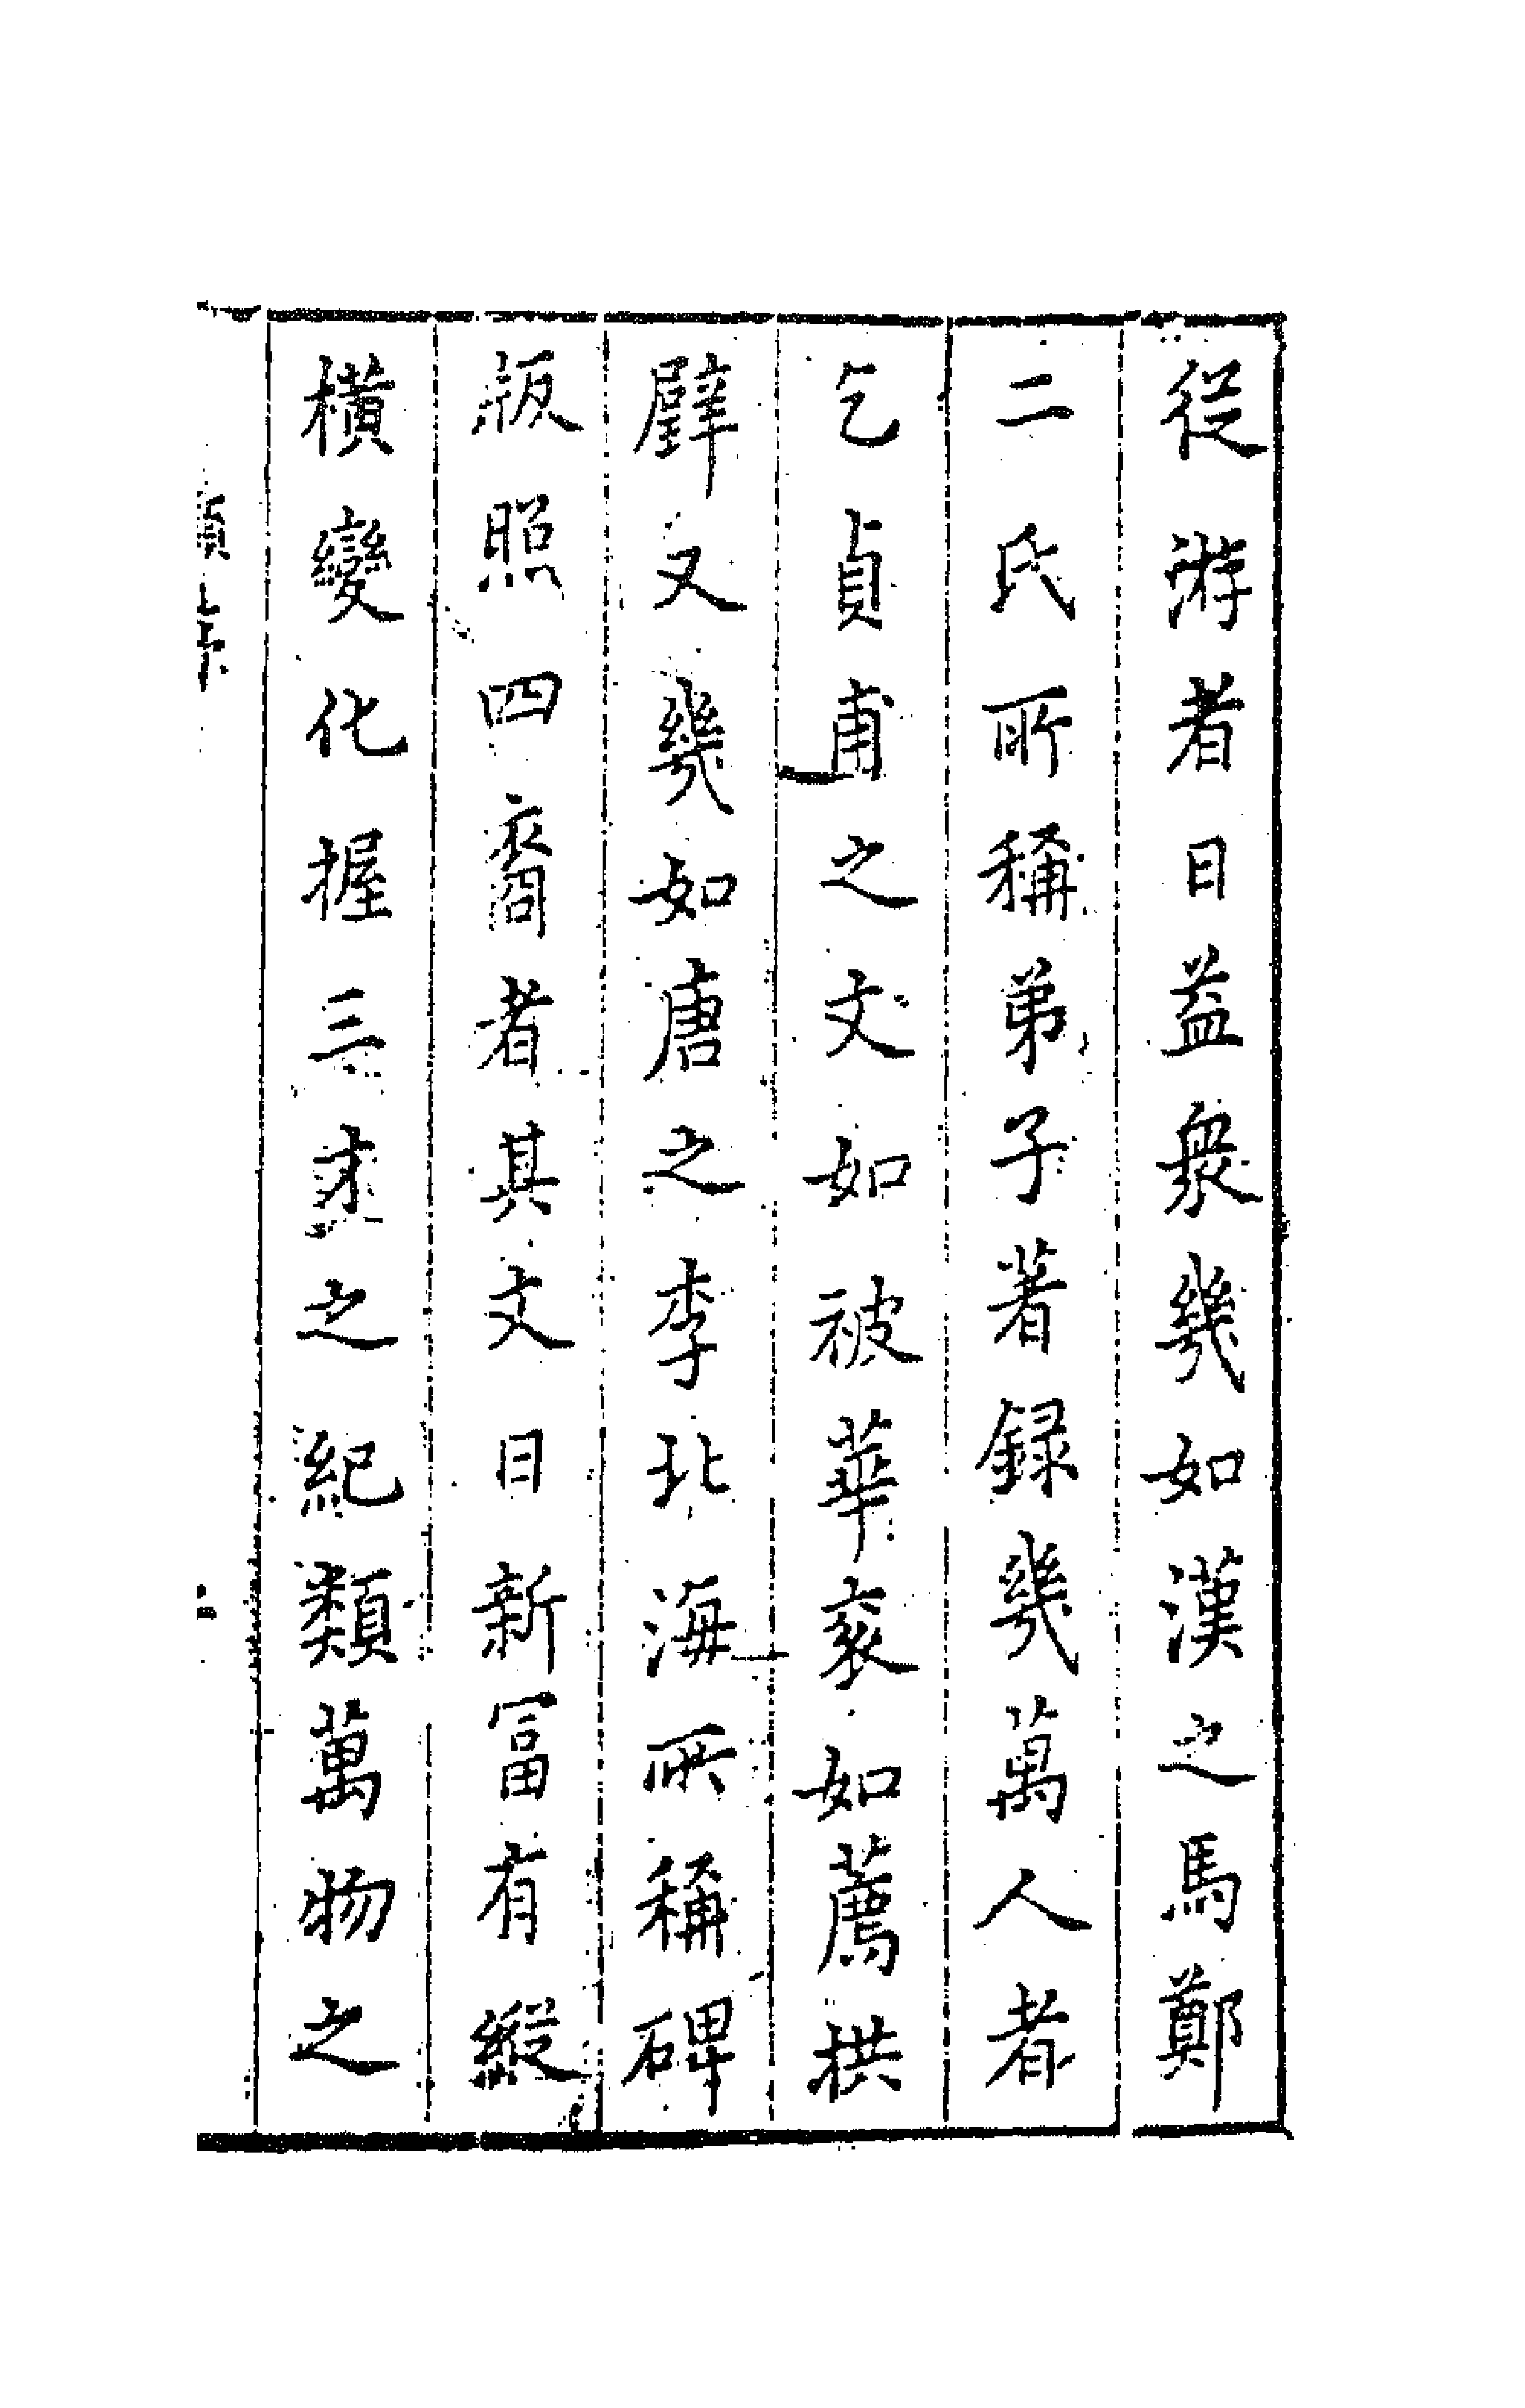 從游者日益衆幾如漢之馬鄭
二氏所稱弟子著録幾萬人者
乞貞甫之文如被華衮如薦拱
璧又幾如唐之李北海所稱碑
版照四裔者其文日新富有縱
橫變化握三才之紀類萬物之